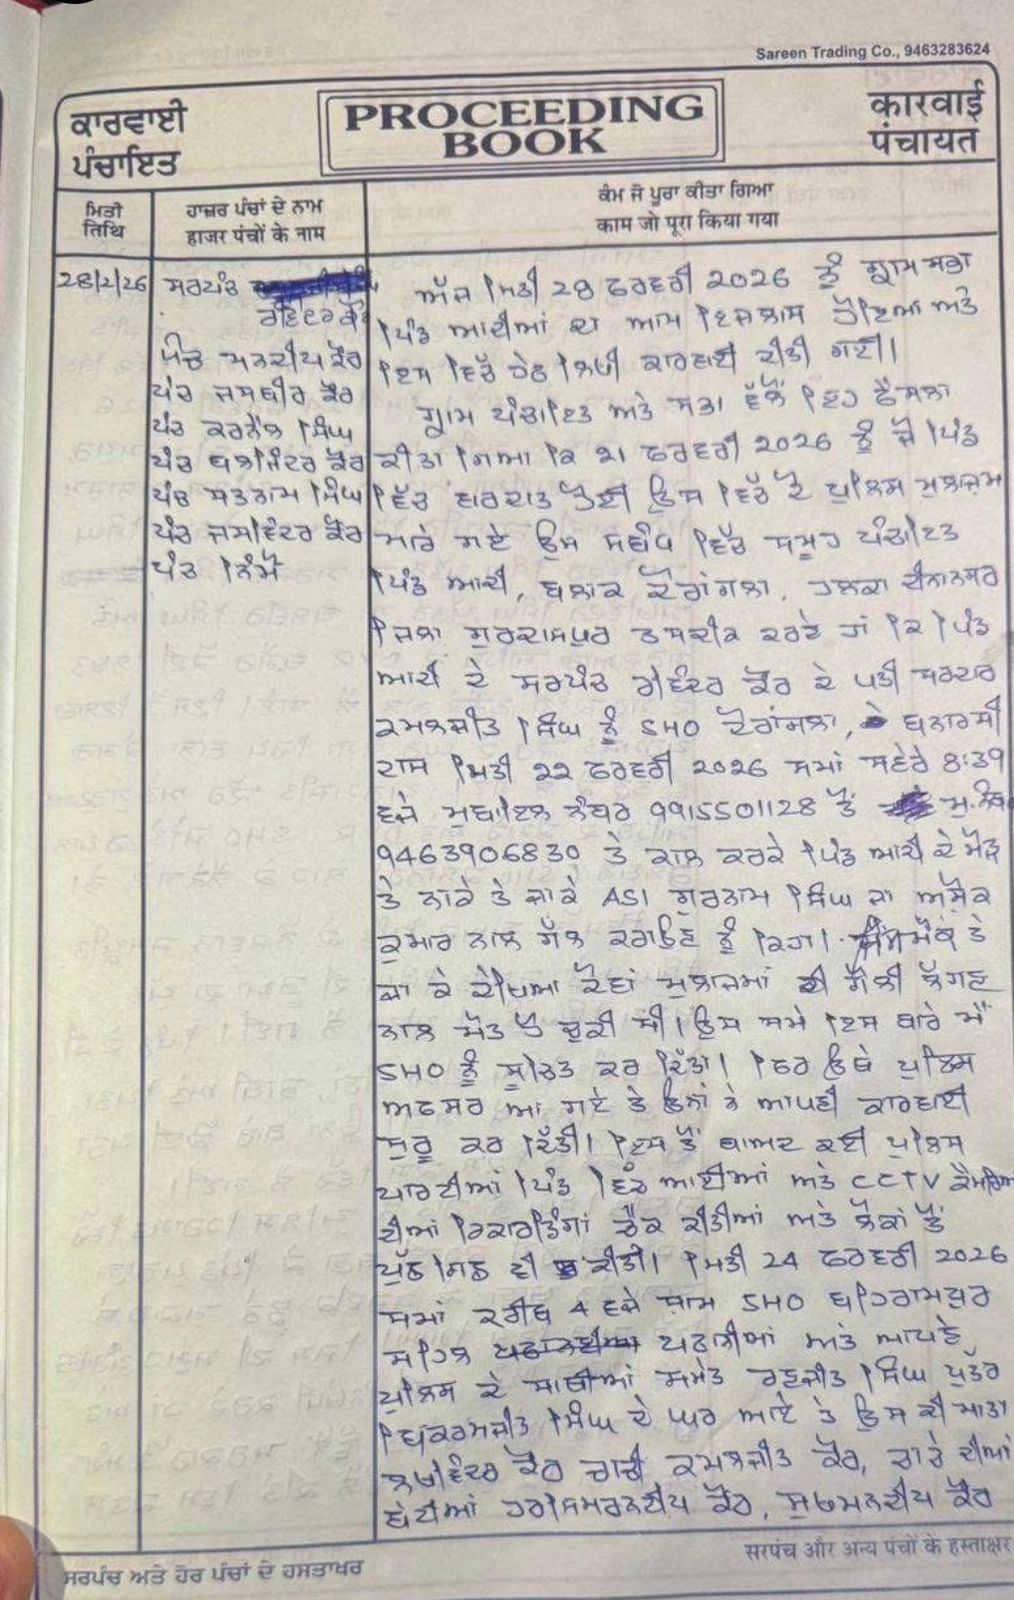 Sareen Trading Co., 9463283624
ਕਾਰਵਾਈ
ਪੰਚਾਇਤ
PROCEEDING
BOOK
कारवाई
पंचायत
ਮਿਤੀ
तिथि
ਹਾਜ਼ਰ ਪੰਚਾਂ ਦੇ ਨਾਮ
हाजर पंचों के नाम
ਕੰਮ ਜੋ ਪੂਰਾ ਕੀਤਾ ਗਿਆ
काम जो पूरा किया गया
28/2/26
ਸਰਪੰਚ
ਰਵਿੰਦਰ ਕੌਰ
ਪੰਚ ਮਨਦੀਪ ਕੌਰ
ਪੰਚ ਜਸਬੀਰ ਕੌਰ
ਪੰਚ ਕਰਨੈਲ ਸਿੰਘ
ਪੰਚ ਬਲਜਿੰਦਰ ਕੌਰ
ਪੰਚ ਸਤਨਾਮ ਸਿੰਘ
ਪੰਚ ਜਸਵਿੰਦਰ ਕੌਰ
ਪੰਚ ਨਿੰਮੋ
ਅੱਜ ਮਿਤੀ 28 ਫਰਵਰੀ 2026 ਨੂੰ ਗ੍ਰਾਮ ਸਭਾ
ਪਿੰਡ ਆਦੀਆਂ ਦਾ ਆਮ ਇਜਲਾਸ ਹੋਇਆ ਅਤੇ
ਇਸ ਵਿੱਚ ਹੇਠ ਲਿਖੀ ਕਾਰਵਾਈ ਕੀਤੀ ਗਈ।
ਗ੍ਰਾਮ ਪੰਚਾਇਤ ਅਤੇ ਸਭਾ ਵੱਲੋਂ ਇਹ ਫੈਸਲਾ
ਕੀਤਾ ਗਿਆ ਕਿ 21 ਫਰਵਰੀ 2026 ਨੂੰ ਜੋ ਪਿੰਡ
ਵਿੱਚ ਵਾਰਦਾਤ ਹੋਈ ਉਸ ਵਿੱਚ ਦੋ ਪੁਲਿਸ ਮੁਲਾਜ਼ਮ
ਮਾਰੇ ਗਏ ਉਸ ਸਬੰਧ ਵਿੱਚ ਸਮੂਹ ਪੰਚਾਇਤ
ਪਿੰਡ ਆਦੀ, ਬਲਾਕ ਦੋਰਾਂਗਲਾ, ਹਲਕਾ ਦੀਨਾਨਗਰ
ਜਿਲਾ ਗੁਰਦਾਸਪੁਰ ਤਸਦੀਕ ਕਰਦੇ ਹਾਂ ਕਿ ਪਿੰਡ
ਆਦੀ ਦੇ ਸਰਪੰਚ ਰਵਿੰਦਰ ਕੌਰ ਦੇ ਪਤੀ ਸਰਦਾਰ
ਕਮਲਜੀਤ ਸਿੰਘ ਨੂੰ SHO ਦੋਰਾਂਗਲਾ, ਬਨਾਰਸੀ
ਦਾਸ ਮਿਤੀ 22 ਫਰਵਰੀ 2026 ਸਮਾਂ ਸਵੇਰੇ 8:39
ਵਜੇ ਮੁਬਾਇਲ ਨੰਬਰ 9915501128 ਤੋਂ ਮੁ.
9463906830 ਤੇ ਕਾਲ ਕਰਕੇ ਪਿੰਡ ਆਦੀ ਦੇ ਮੋੜ
ਤੇ ਨਾਕੇ ਤੇ ਜਾਕੇ ASI ਗੁਰਨਾਮ ਸਿੰਘ ਜਾਂ ਅਸ਼ੋਕ
ਕੁਮਾਰ ਨਾਲ ਗੱਲ ਕਰਾਉਣ ਨੂੰ ਕਿਹਾ। ਮੌਕੇ ਤੇ
ਜਾ ਕੇ ਦੇਖਿਆ ਦੋਵਾਂ ਮੁਲਾਜਮਾਂ ਦੀ ਗੋਲੀ ਲੱਗਣ
ਨਾਲ ਮੌਤ ਹੋ ਚੁਕੀ ਸੀ। ਉਸ ਸਮੇਂ ਇਸ ਬਾਰੇ ਮੈਂ
SHO ਨੂੰ ਸੂਚਿਤ ਕਰ ਦਿੱਤਾ। ਫਿਰ ਉਥੇ ਪੁਲਿਸ
ਅਫਸਰ ਆ ਗਏ ਤੇ ਉਨਾਂ ਨੇ ਆਪਣੀ ਕਾਰਵਾਈ
ਸੁਰੂ ਕਰ ਦਿੱਤੀ। ਇਸ ਤੋਂ ਬਾਅਦ ਕਈ ਪੁਲਿਸ
ਪਾਰਟੀਆਂ ਪਿੰਡ ਵਿੱਚ ਆਈਆਂ ਅਤੇ CCTV ਕੈਮਰਿਆਂ
ਦੀਆਂ ਰਿਕਾਰਡਿੰਗਾਂ ਚੈਕ ਕੀਤੀਆਂ ਅਤੇ ਲੋਕਾਂ ਤੋਂ
ਪੁੱਛ ਗਿਛ ਵੀ ਕੀਤੀ। ਮਿਤੀ 24 ਫਰਵਰੀ 2026
ਸਮਾਂ ਕਰੀਬ 4 ਵਜੇ ਸ਼ਾਮ SHO ਬਹਿਰਾਮਪੁਰ
ਸਾਹਿਲ ਪਠਾਨੀਆਂ ਅਤੇ ਆਪਣੇ
ਪੁਲਿਸ ਦੇ ਸਾਥੀਆਂ ਸਮੇਤ ਰਣਜੀਤ ਸਿੰਘ ਪੁੱਤਰ
ਬਿਕਰਮਜੀਤ ਸਿੰਘ ਦੇ ਘਰ ਆਏ ਤੇ ਉਸ ਦੀ ਮਾਤਾ
ਲਖਵਿੰਦਰ ਕੌਰ ਚਾਚੀ, ਕਮਲਜੀਤ ਕੌਰ, ਚਾਚੇ ਦੀਆਂ
ਬੇਟੀਆਂ ਹਰਸਿਮਰਨਦੀਪ ਕੌਰ, ਸੁਖਮਨਦੀਪ ਕੌਰ
ਸਰਪੰਚ ਅਤੇ ਹੋਰ ਪੰਚਾਂ ਦੇ ਹਸਤਾਖਰ
सरपंच और अन्य पंचों के हस्ताक्षर